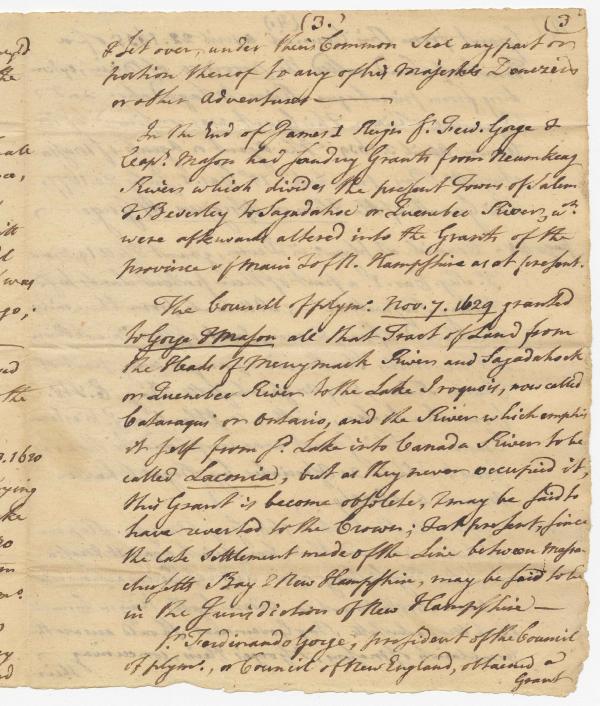 (3.)
3
& Set over, under their Common Seal any part or
portion thereof to any of his Majesties Denezeins
or other Adventurers —
In the End of James I Reign Sr. Ferd. Gorge &
Capt. Mason had sundry Grants from Neumkeag
River which divides the present Towns of Salem
& Beverley to Sagadahoc or Quenebec River, wch.
were afterwards altered into the Grants of the
province of Main & of N. Hampshire as at present.
The Council of plymo. Nov. 7. 1629 granted
to Gorge & Mason all that Tract of Land from
the Heads of Merrymack River and Sagadahock
or Quenebec River to the Lake Iroquois, now called
Cataraqui or Ontario, and the River which emptis
it self from sd. Lake into Canada River to be
called Laconia, but as they never occupied it,
this Grant is become obsolete, & may be said to
have reverted to the Crown; & at present, since
the late Settlement made of the Line between Massa
chusetts Bay & New Hampshire, may be said to be
in the Jurisdiction of New Hampshire —
Sr. Ferdinando Gorge, president of the Council
of plymo., or Council of New England, obtained a
Grant
the
was
the
1620
ying